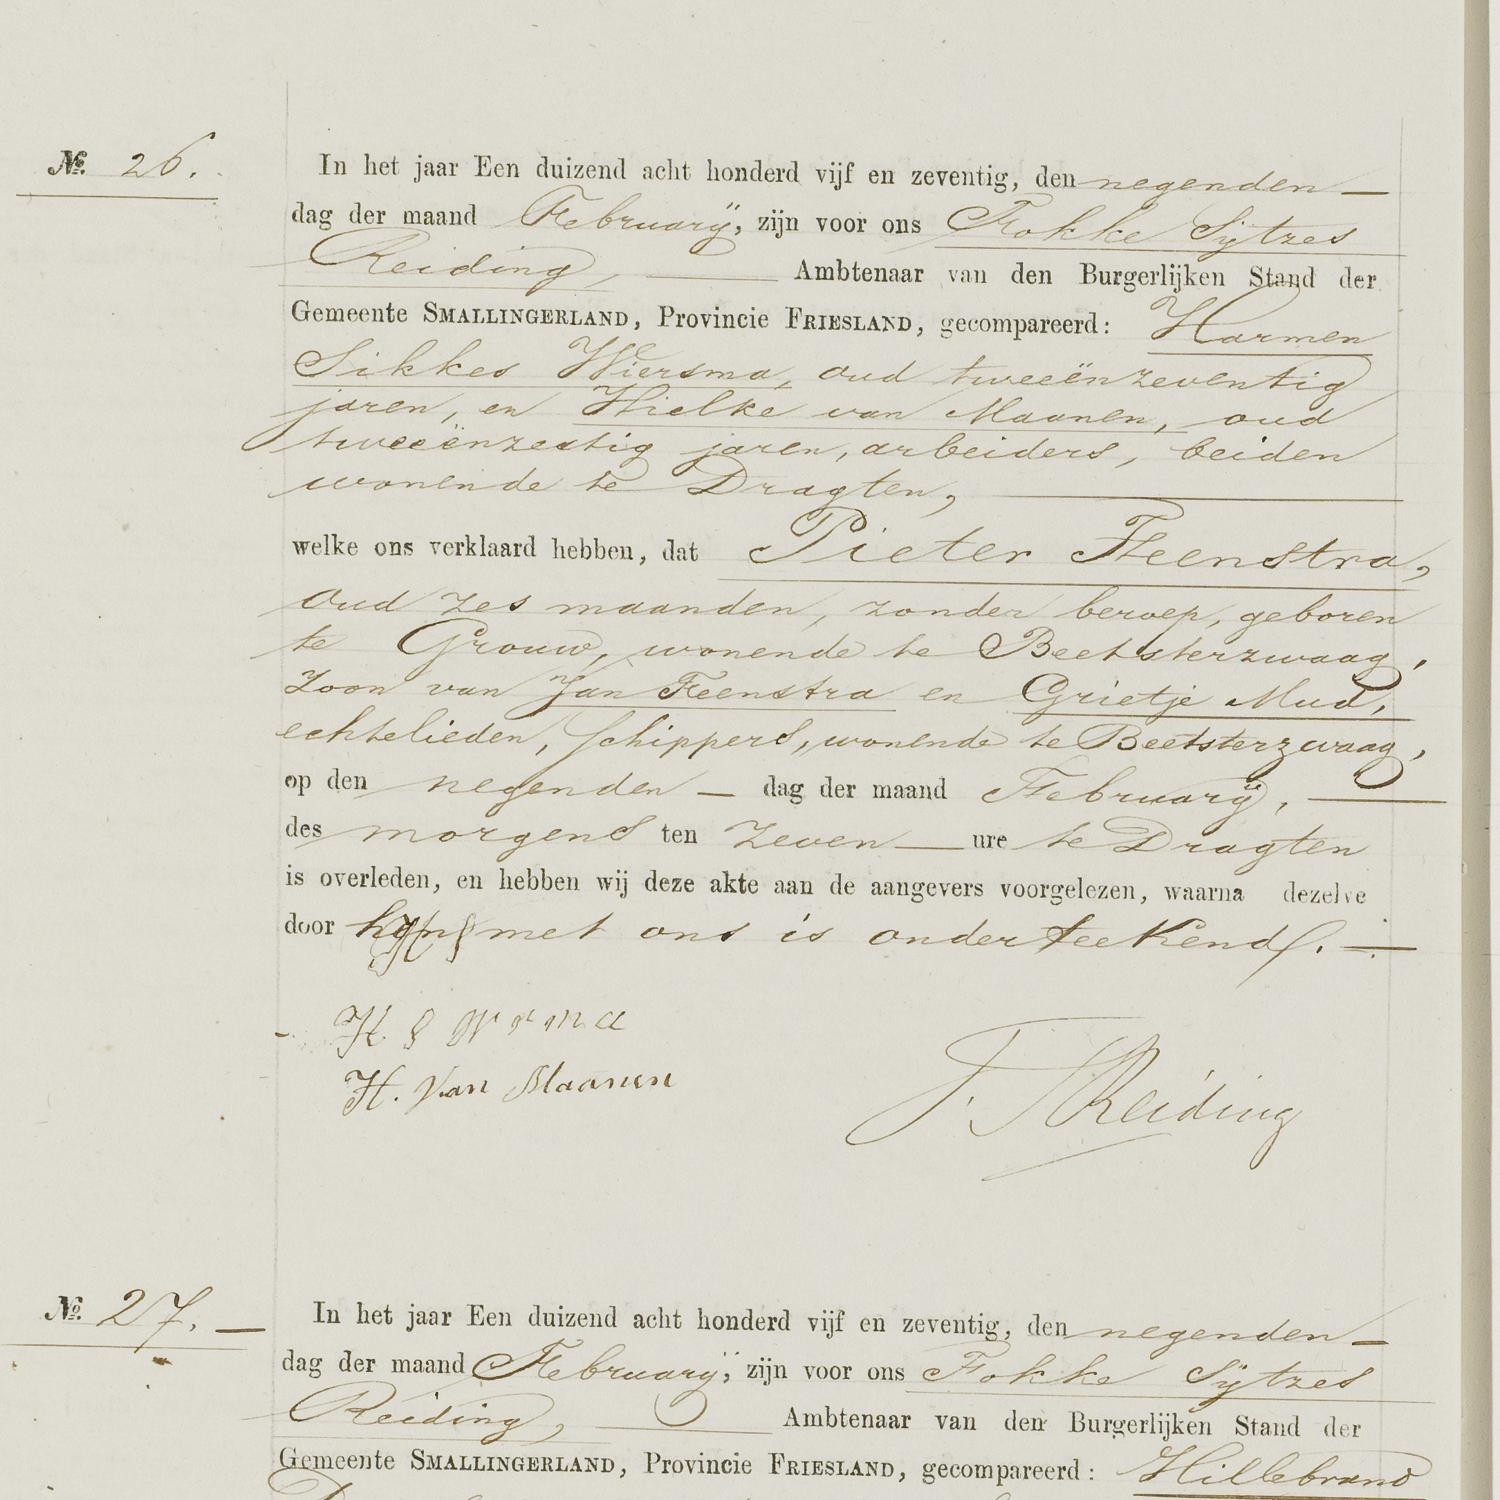 №. 26.
In het jaar Een duizend acht honderd vijf en zeventig, den negenden —
dag der maand Februarÿ, zijn voor ons Fokke Sÿtzes
Reiding, — Ambtenaar van den Burgerlijken Stand der
Gemeente SMALLINGERLAND, Provincie FRIESLAND, gecompareerd: Harmen
Sikkes Wiersma, oud tweeënzeventig
jaren, en Hielke van Maanen, oud
tweeënzestig jaren, arbeiders, beiden
wonende te Dragten, —
welke ons verklaard hebben, dat Pieter Feenstra,
oud zes maanden, zonder beroep, geboren
te Grouw, wonende te Beetsterzwaag,
zoon van Jan Feenstra en Grietje Mud,
echtelieden, schippers, wonende te Beetsterzwaag,
op den negenden — dag der maand Februarÿ, —
des morgens ten zeven — ure te Dragten
is overleden, en hebben wij deze akte aan de aangevers voorgelezen, waarna dezelve
door hen met ons is onderteekend. —
H. S W
H. Van Maanen
F. S Reiding
№. 27. —
In het jaar Een duizend acht honderd vijf en zeventig, den negenden —
dag der maand Februarÿ, zijn voor ons Fokke Sÿtzes
Reiding, — Ambtenaar van den Burgerlijken Stand der
Gemeente SMALLINGERLAND, Provincie FRIESLAND, gecompareerd: Hillebrand